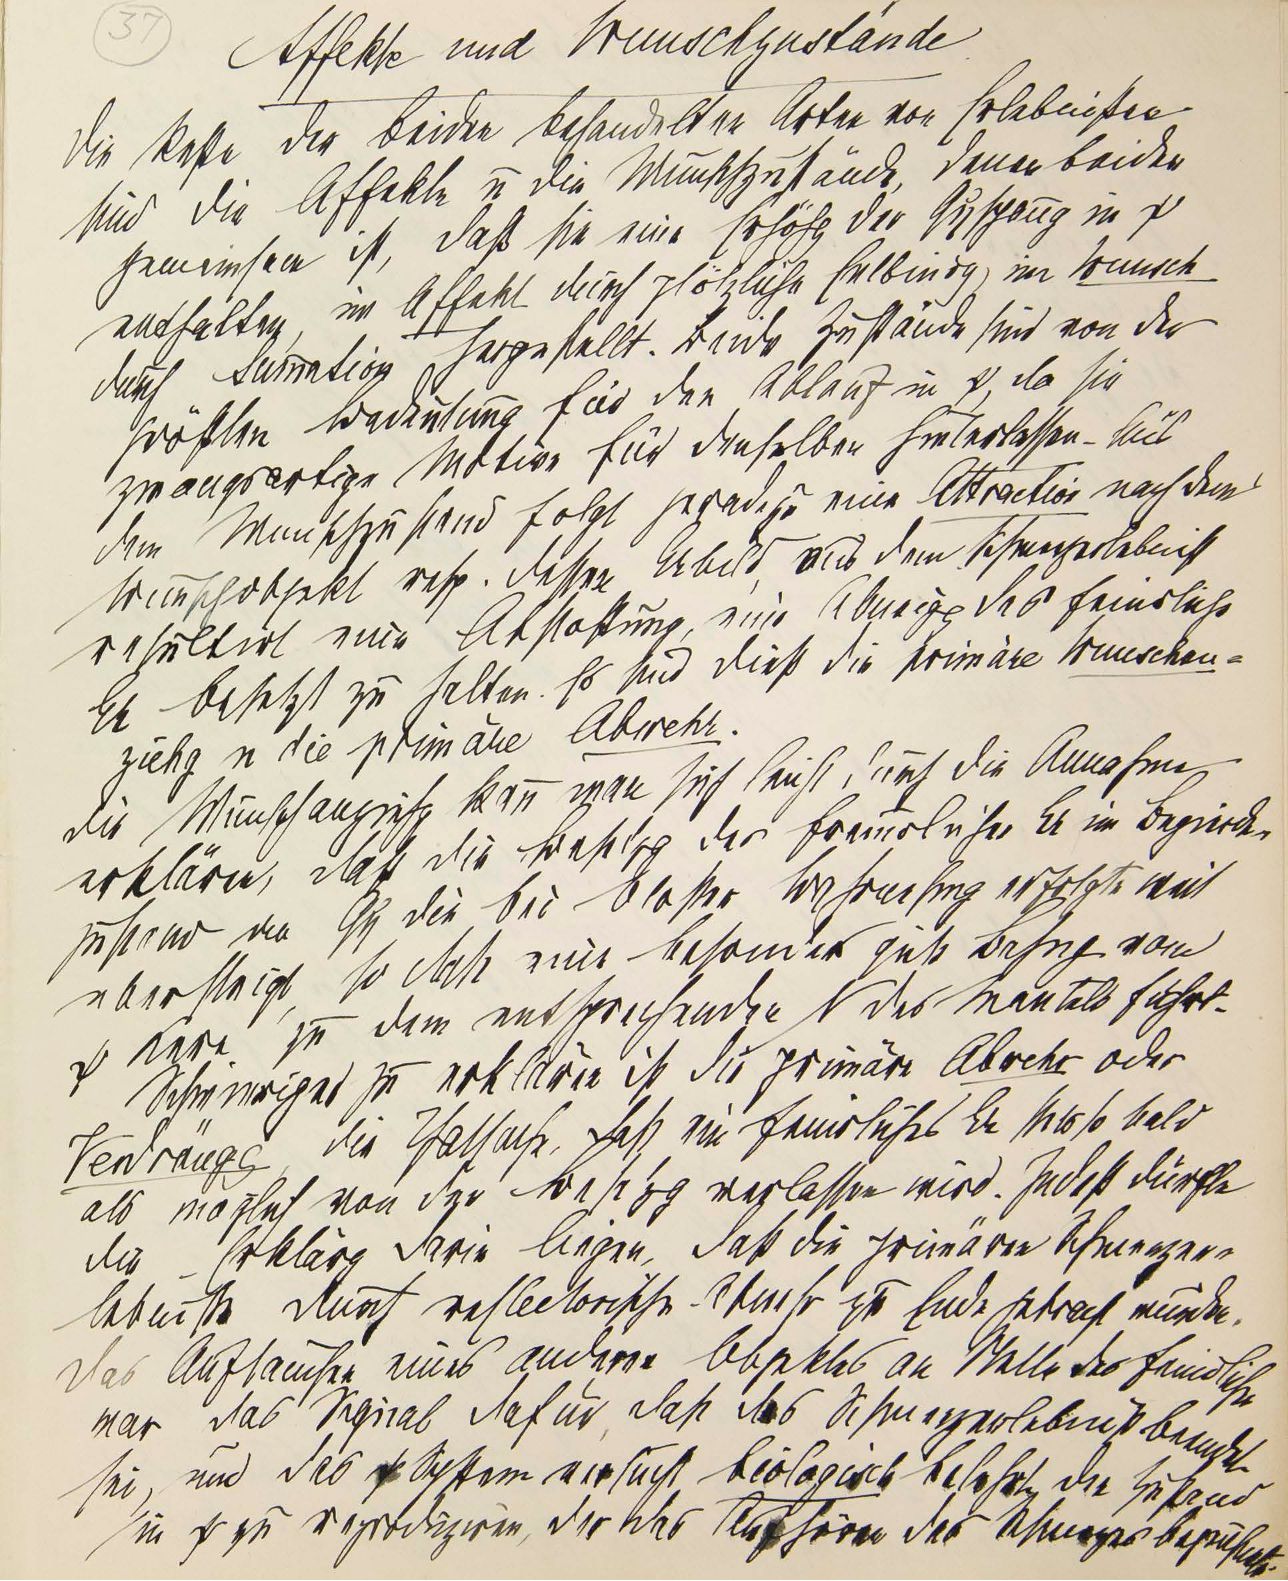 37
Affekte und Wunschzustände
Die Reste der beiden behandelten Arten von Erlebnissen
sind die Affekte u die Wunschzustände, denen beiden
gemeinsam ist, daß sie eine Erhöhg der Qη̇spannung in ψ
enthalten, im Affekt durch plötzliche Entbindg, im Wunsch
durch Summation hergestellt. Beide Zustände sind von der
größten Bedeutung für den Ablauf in ψ, da sie
zwangsartige Motive für denselben hinterlassen. Aus
dem Wunschzustand folgt geradezu eine Attraction nach dem
Wunschobjekt resp. dessen Erbild, aus dem Schmerzerlebniß
resultirt eine Abstoßung, eine Abneigg das feindliche
Er besetzt zu halten. Es sind dieß die primäre Wunschan=
ziehg u die primäre Abwehr.
Die Wunschanziehg kann man sich leicht durch die Annahme
erklären, daß die Besetzg des freundlichen Er im Begierde
zustand an Qη̇ die bei bloßer Wahrnehmg erfolgte weit
übersteigt, so daß eine besonders gute Bahng vom
ψ Kern zu dem entsprechenden N des Mantels führt.
Schwieriger zu erklären ist die primäre Abwehr oder
Verdrängg, die Thatsache, daß ein feindliches Er stets so bald
als möglich von der Besetzg verlassen wird. Indeß dürfte
die Erklärg darin liegen, daß die primären Schmerzer=
lebnisse durch reflectorische Abwehr zu Ende gebracht wurden.
Das Auftauchen eines anderen Objektes an Stelle des feindlichen
war das Signal dafür, daß das Schmerzerlebniß beendet
sei, und das ψ System versucht biologisch belehrt, den Zustand
in ψ zu reproduziren, der das Aufhören des Schmerzes bezeichnete.